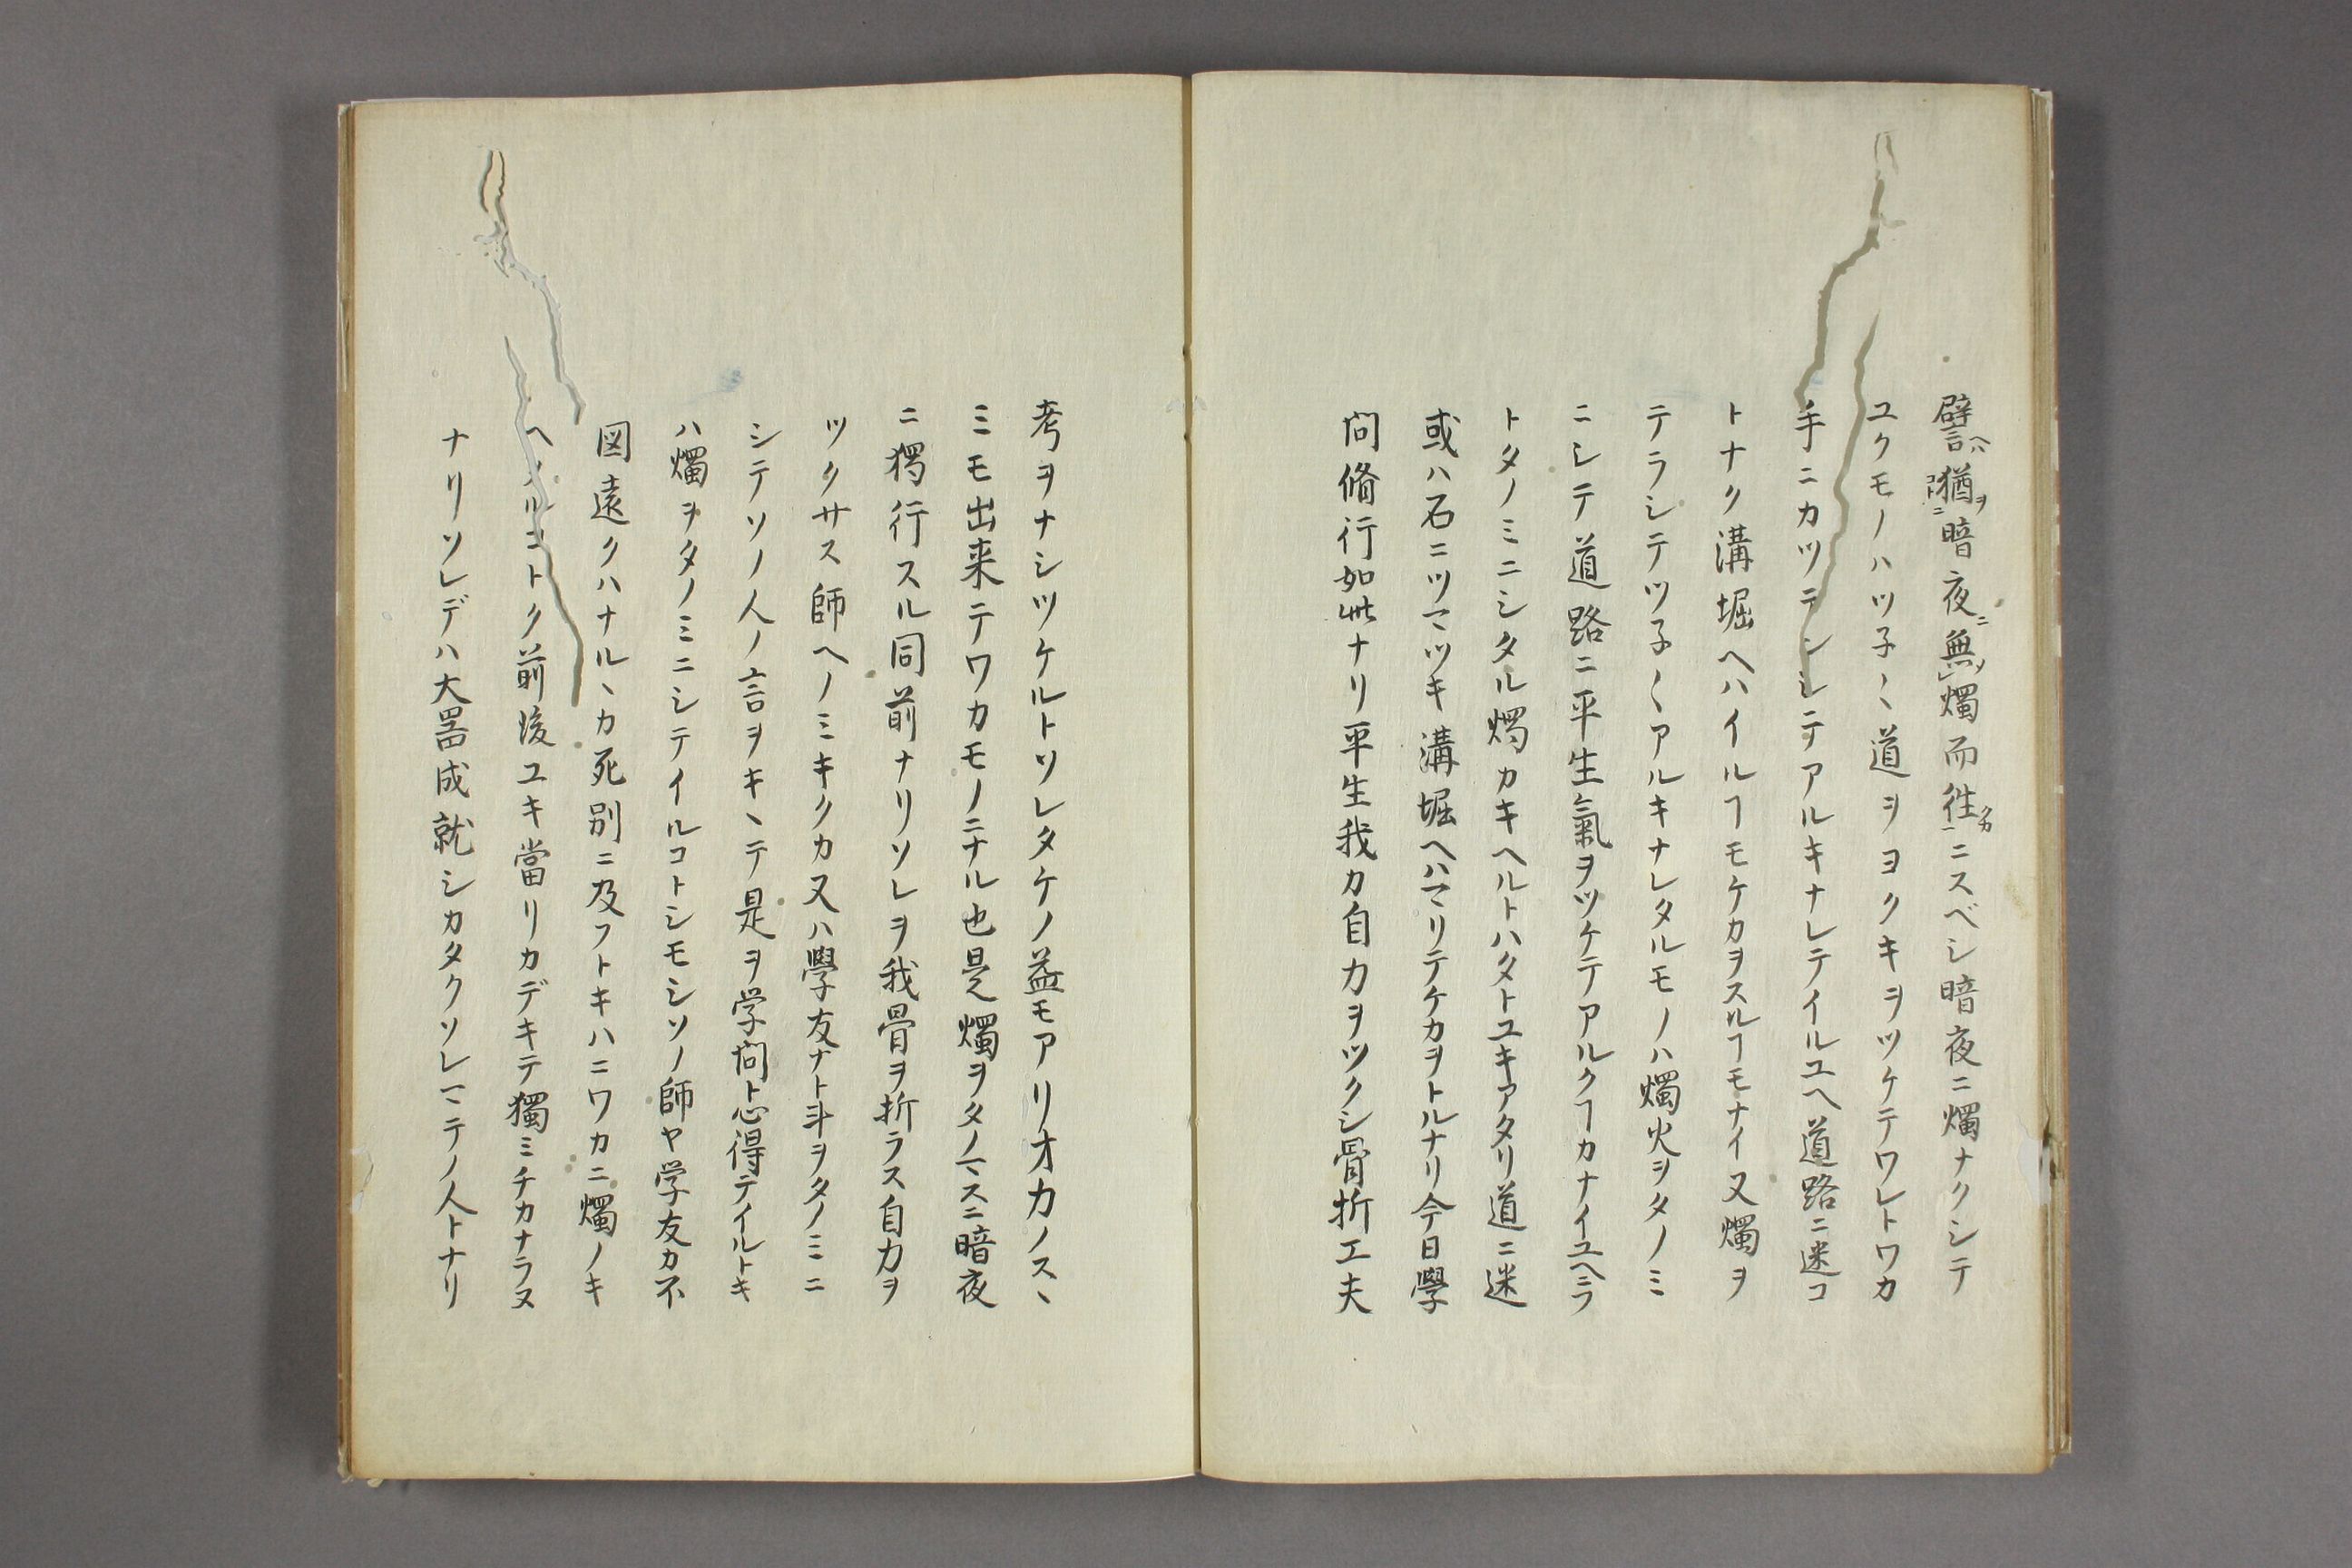 譬ヘハ猶ヲ暗夜ニ無ソ燭而徃クカニスベシ暗夜ニ燭ナクシテ
ユクモノハツ子〱道ヲヨクキヲツケテワレトワカ
手ニカツテンシテアルキナレテイルユヘ道路ニ迷コ
トナク溝堀ヘハイルヿモケカヲスルヿモナイ又燭ヲ
テラシテツ子〱アルキナレタルモノハ燭火ヲタノミ
ニシテ道路ニ平生氣ヲツケテアルクヿカナイユヘニフ
トタノミニシタル燭カキヘルトハタトユキアタリ道ニ迷
或ハ石ニツマツキ溝堀ヘハマリテケカヲトルナリ今日學
問脩行如此ナリ平生我カ自力ヲツクシ骨折工夫
考ヲナシツケルトソレタケノ益モアリオカノスヽ
ミモ出来テワカモノニナル也是燭ヲタノマスニ暗夜
ニ獨行スル同前ナリソレヲ我骨ヲ折ラス自力ヲ
ツクサス師ヘノミキクカ又ハ學友ナト斗ヲタノミニ
シテソノ人ノ言ヲキヽテ是ヲ学問ト心得テイルトキ
ハ燭ヲタノミニシテイルコトシモシソノ師ヤ学友カ不
図遠クハナルヽカ死別ニ及フトキハニワカニ燭ノキ
ヘタルコトク前後ユキ當リカデキテ獨ミチカナラヌ
ナリソレデハ大器成就シカタクソレマテノ人トナリ